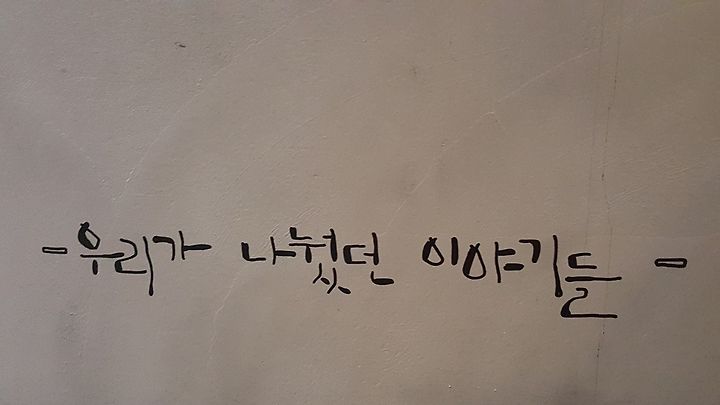 - 우리가 나눴던 이야기들 -